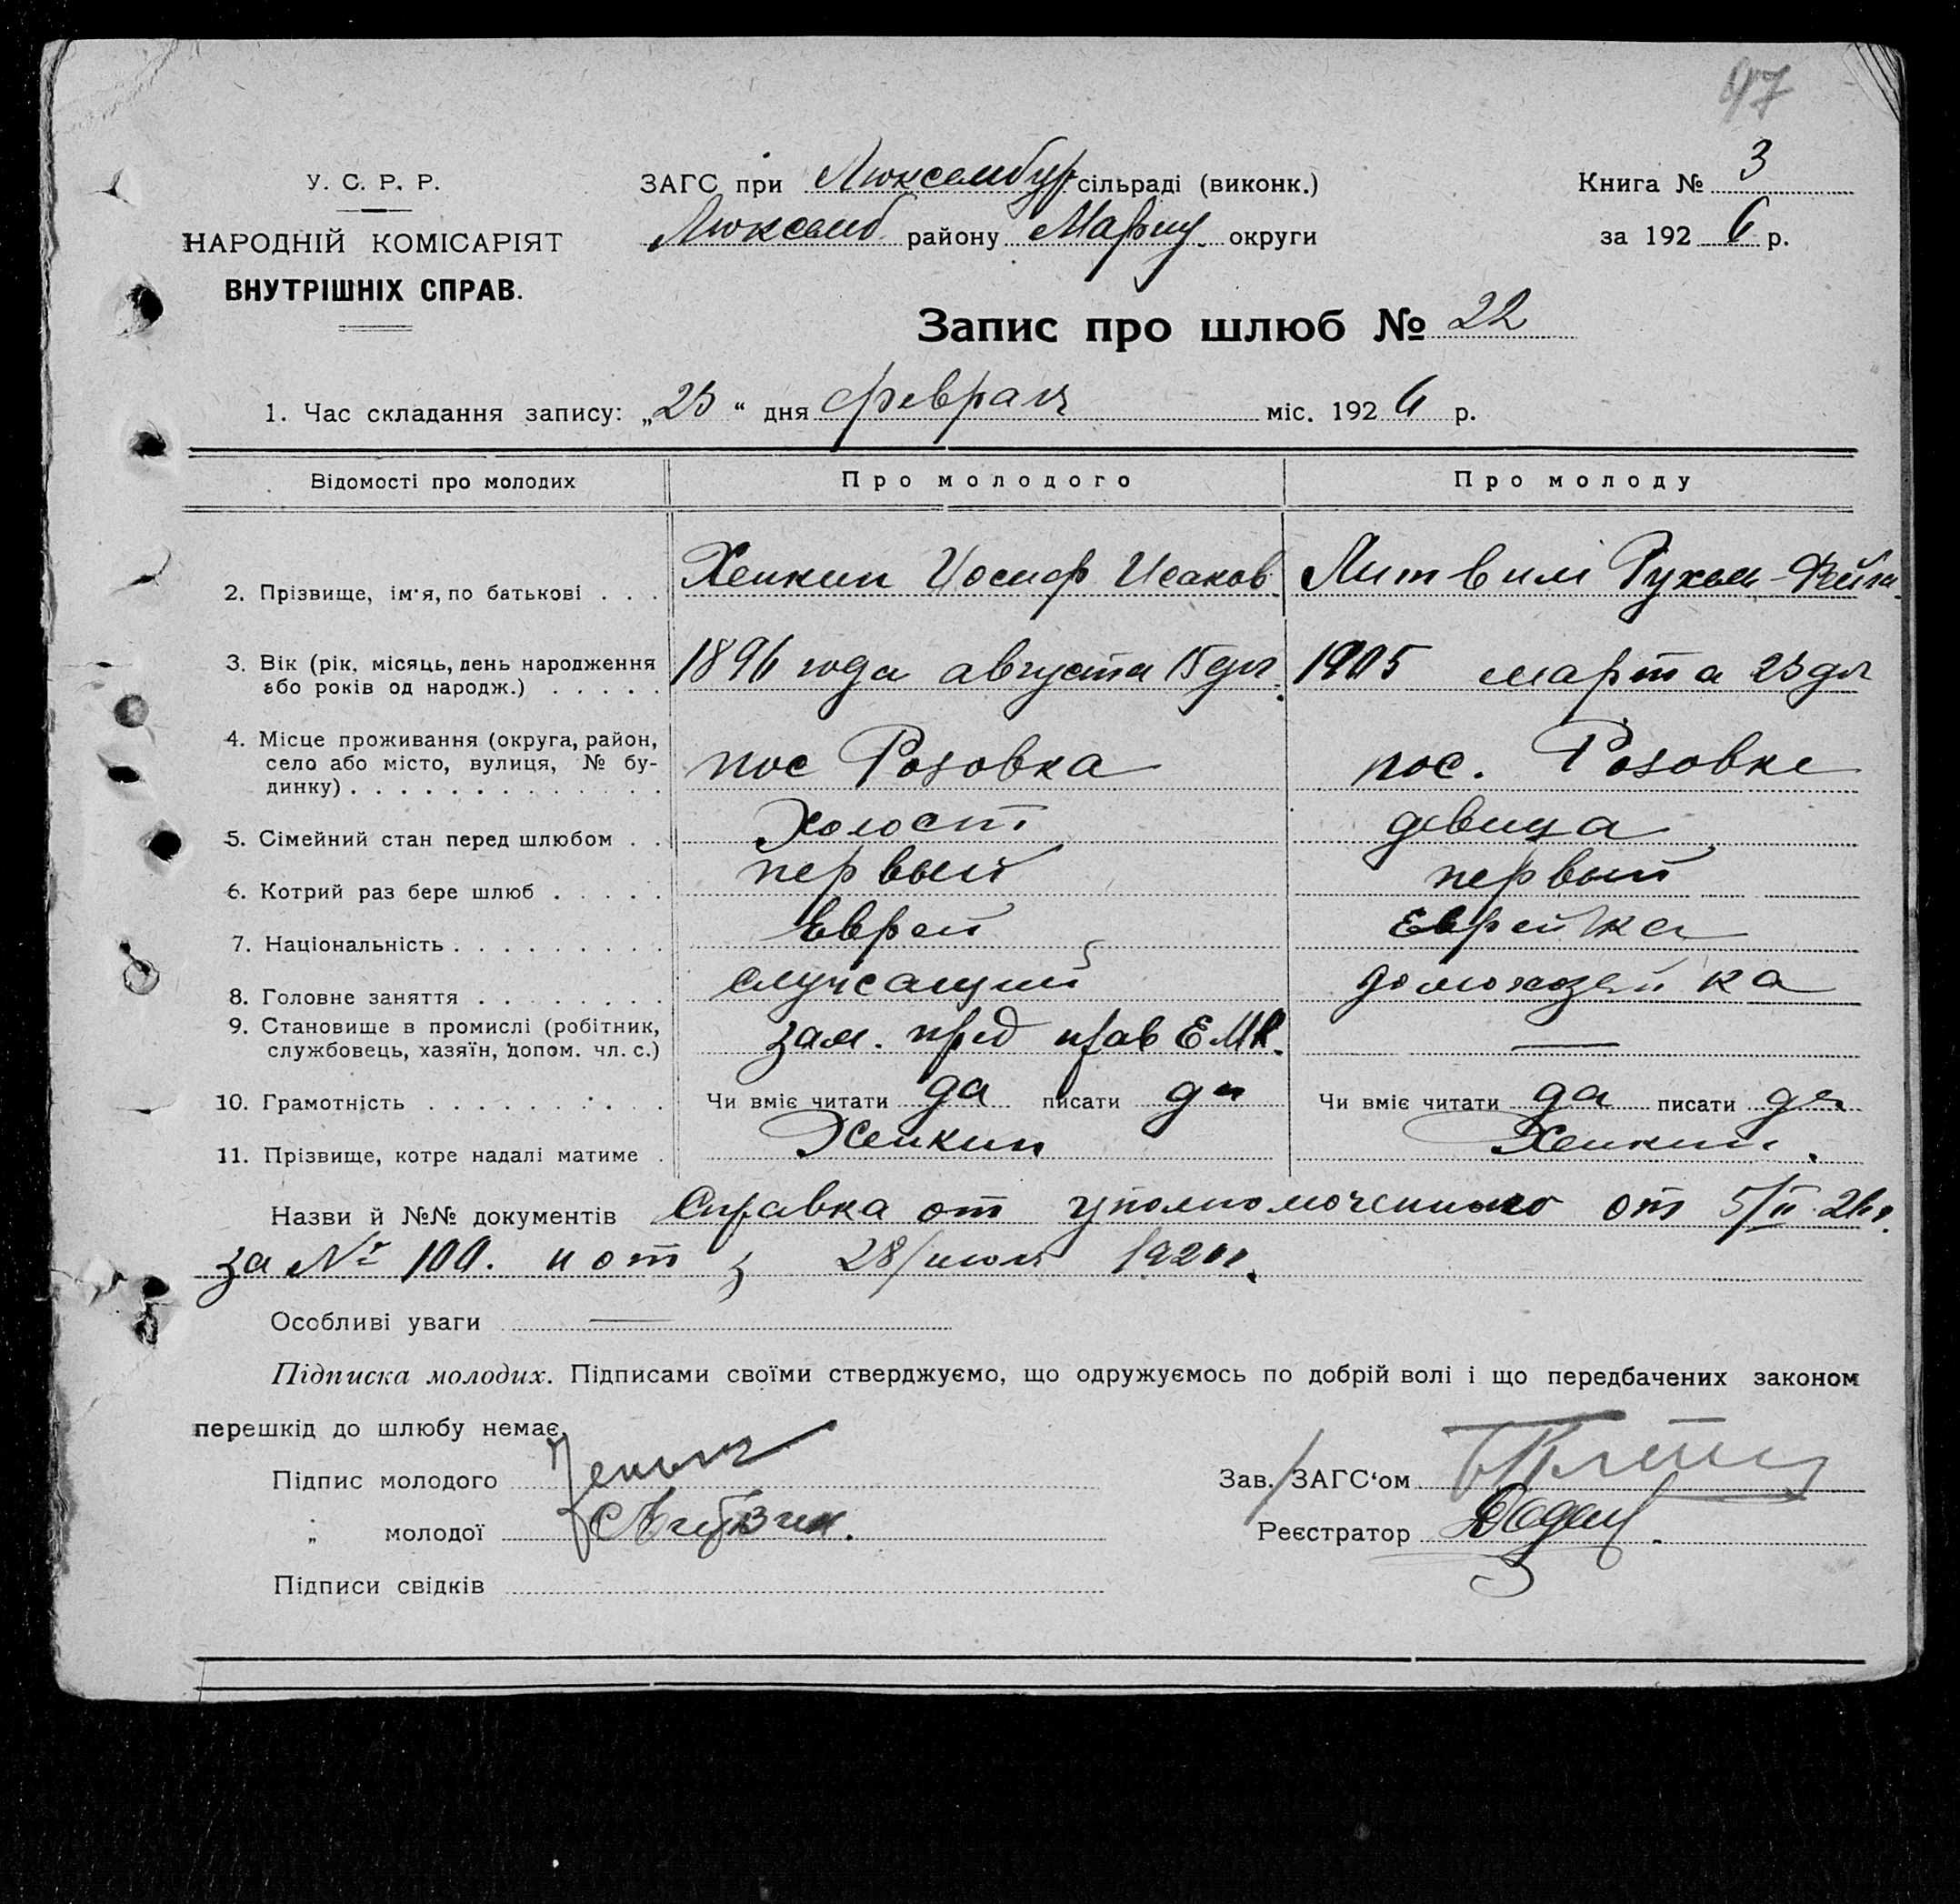 97
У. С. Р. Р.
НАРОДНІЙ КОМІСАРІЯТ
ВНУТРІШНІХ СПРАВ.
ЗАГС при Люксембур сільраді (виконк.)
Люксемб району Мариуп. округи
Книга № 3
за 1926 р.
Запис про шлюб № 22
1. Час складання запису: „25“ дня февраля міс. 1926 р.
Відомості про молодих Про молодого Про молоду
2. Прізвище, ім'я, по батькові . . . Хенкин Иосиф Исаков. Литвин Рухем-Фейга
3. Вік (рік, місяць, день народження
або років од народж.) . . . . . 1896 года августа 15 дня 1905 марта 25 дня
4. Місце проживання (округа, район,
село або місто, вулиця, № бу-
динку) . . . . . . . . . . . . . пос Розовка пос. Розовке
5. Сімейний стан перед шлюбом . . Холост девица
6. Котрий раз бере шлюб . . . . . первый первый
7. Національність . . . . . . . . . Еврей Еврейка
8. Головне заняття . . . . . . . . служащий домохозяйка
9. Становище в промислі (робітник,
службовець, хазяїн, допом. чл. с.) зам. пред прав ЕМК. —
10. Грамотність . . . . . . . . . . Чи вміє читати да писати да Чи вміє читати да писати да
11. Прізвище, котре надалі матиме . Хенкин Хенкин.
Назви й №№ документів Справка от уполномоченного от 5/II 26 г.
за № 100. и от 28/июля 192
Особливі уваги —
Підписка молодих. Підписами своїми стверджуємо, що одружуємось по добрій волі і що передбачених законом
перешкід до шлюбу немає.
Підпис молодого
„ молодої Литвин.
Зав. ЗАГС'ом
Реєстратор
Підписи свідків